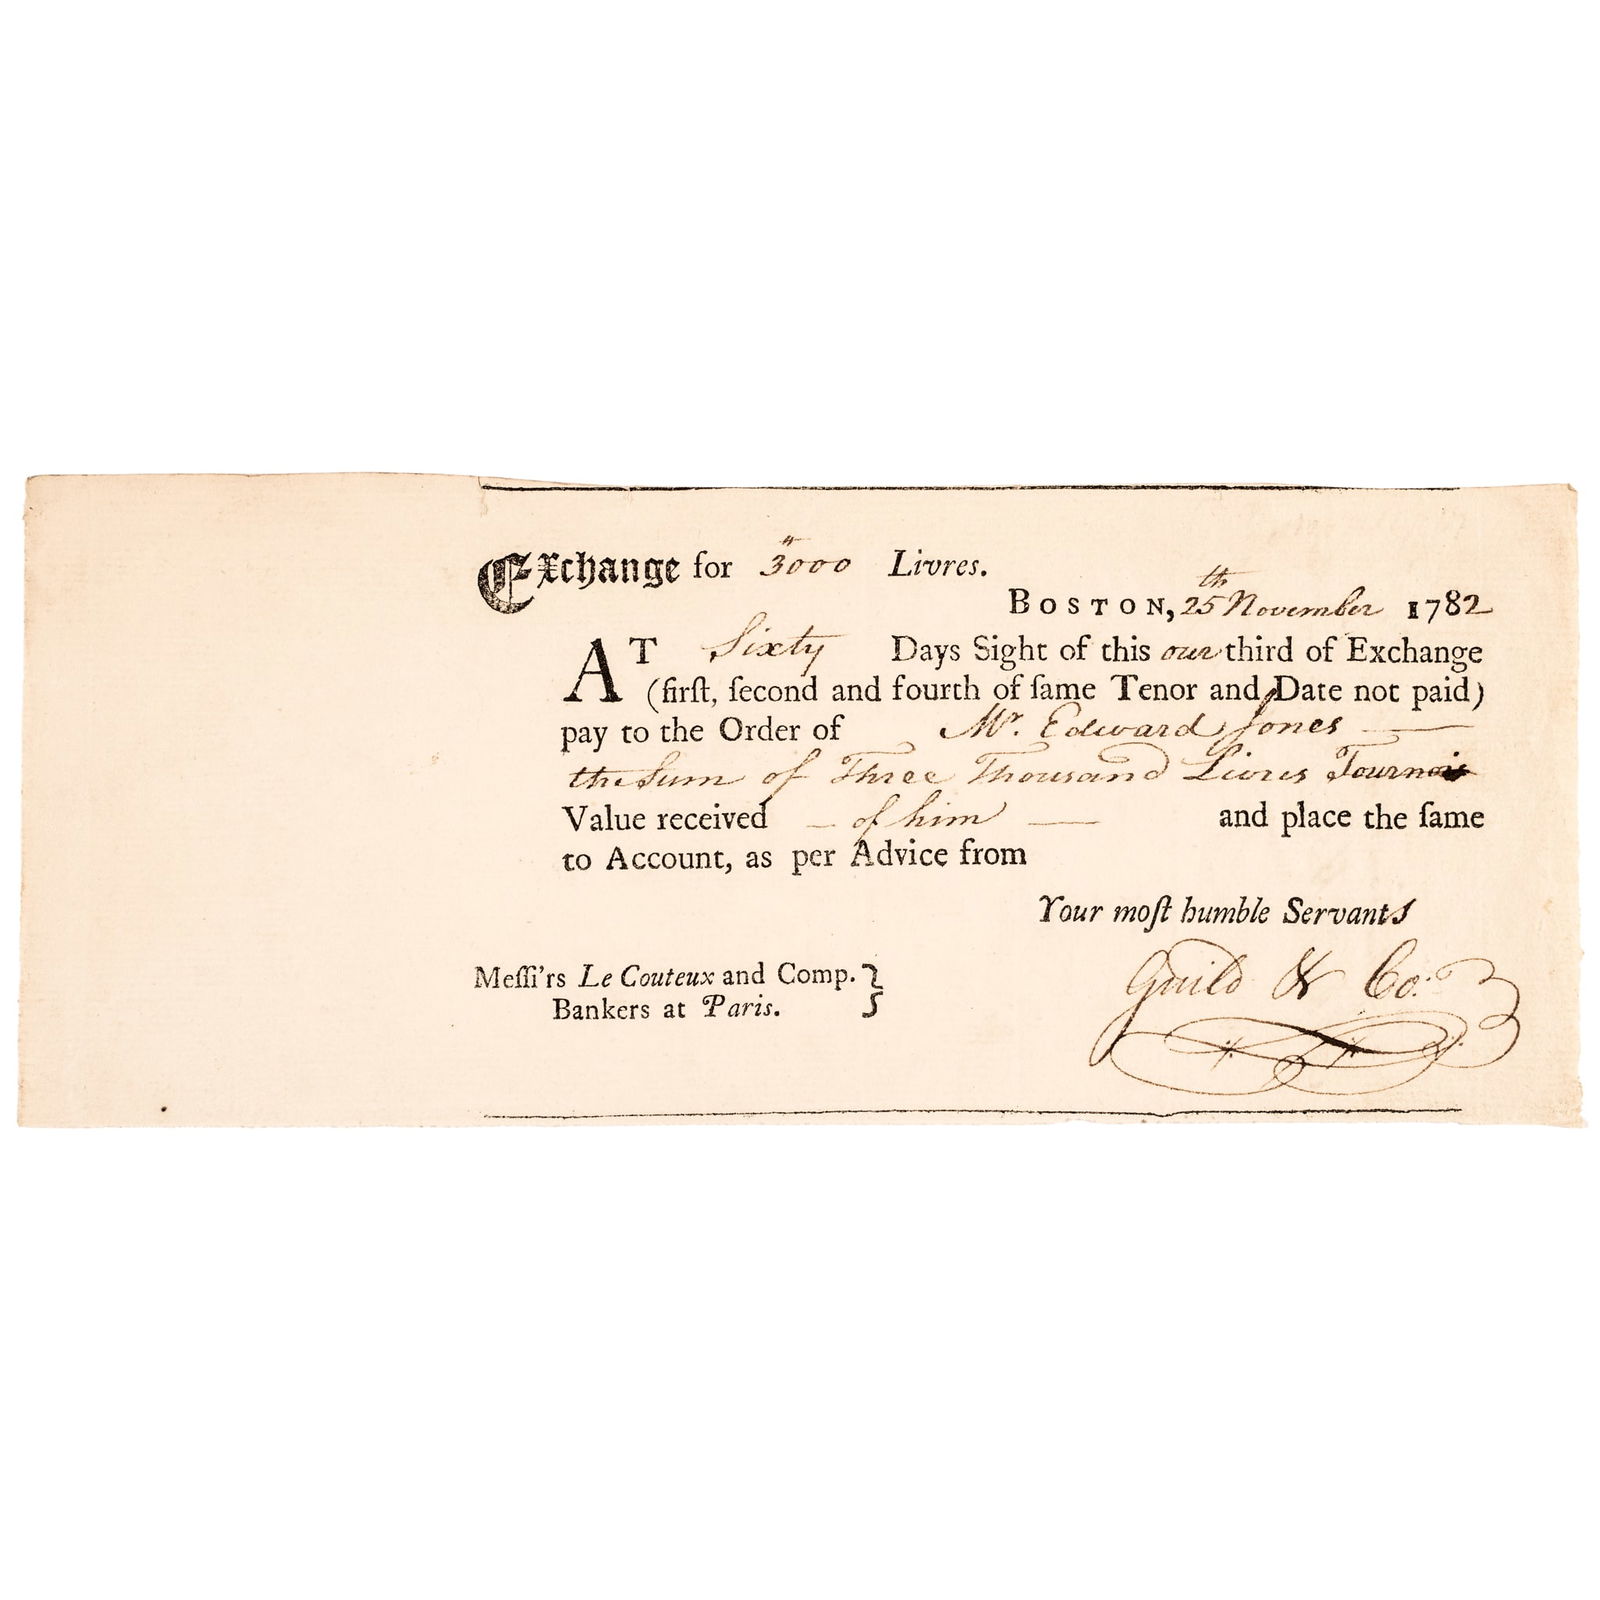 Exchange for 3000 Livres.
BOSTON, 25th November 1782
AT Sixty Days Sight of this our third of Exchange
(firſt, ſecond and fourth of ſame Tenor and Date not paid)
pay to the Order of Mr. Edward Jones
the Sum of Three Thousand Livres Tournois
Value received — of him — and place the ſame
to Account, as per Advice from
Your moſt humble Servants
Guild & Co.
Meſſi'rs Le Couteux and Comp.
Bankers at Paris.